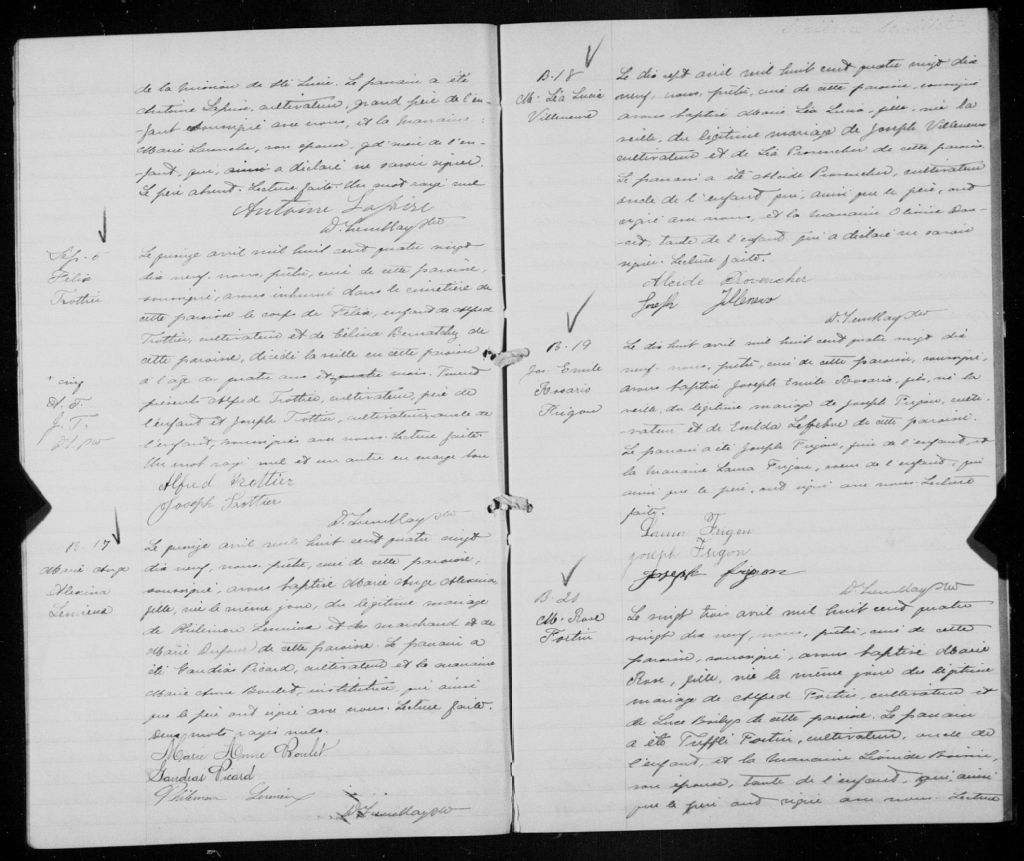 de la mission de Ste Lucie. Le parrain a été
Antoine Lapise, cultivateur, grand père de l'en-
-fant soussigné avec nous, et la marraine
Marie Laroche, son épouse, gd' mère de l'en-
-fant, qui, a déclaré ne savoir signer.
Le père absent. Lecture faite. Un mot rayé nul
Antoine Lapise
D. Tremblay Ptre
Sep. 6
Félia
Trottier
Le quinze avril mil huit cent quatre vingt
dix neuf, nous, prêtre, curé de cette paroisse,
soussigné, avons inhumé dans le cimetière de
cette paroisse le corps de Félia, enfant de Alfred
Trottier, cultivateur et de Célina Bernatchez de
cette paroisse, décédé la veille en cette paroisse
+ cinq
A. T.
J. T.
D.T. ptre
à l'âge de quatre ans et quatre mois. Furent
présents Alfred Trottier, cultivateur, père de
l'enfant et Joseph Trottier, cultivateur, oncle de
l'enfant, soussignés avec nous. Lecture faite.
Un mot rayé nul et un autre en marge bon
Alfred Trottier
Joseph Trottier
D. Tremblay Ptre
B. 17
Marie Ange
Alexina
Lemieux
Le quinze avril mil huit cent quatre vingt
dix neuf, nous, prêtre, curé de cette paroisse,
soussigné, avons baptisé Marie Ange Alexina
fille, née le même jour, du légitime mariage
de Philémon Lemieux marchand et de
Marie Dufour de cette paroisse. Le parrain a
été Gaudias Picard, cultivateur et la marraine
Marie Anne Boulet, institutrice, qui ainsi
que le père ont signé avec nous. Lecture faite.
Deux mots rayés nuls.
Marie Anne Boulet
Gaudias Picard
Philémon Lemieux
D. Tremblay Ptre
B. 18
M. Léa Lucie
Villeneuve
Le dix sept avril mil huit cent quatre vingt dix
neuf, nous, prêtre, curé de cette paroisse, soussigné
avons baptisé Marie Léa Lucie, fille, née la
veille, du légitime mariage de Joseph Villeneuve
cultivateur et de Léa Provencher de cette paroisse.
Le parrain a été Alcide Provencher, cultivateur
oncle de l'enfant qui, ainsi que le père, ont
signé avec nous, et la marraine Dou-
-cet, tante de l'enfant qui a déclaré ne savoir
signer. Lecture faite.
Alcide Provencher
Joseph Villeneuve
D. Tremblay Ptre
B. 19
Jos. Emile
Rosario
Frigon
Le dix huit avril mil huit cent quatre vingt dix
neuf, nous, prêtre, curé de cette paroisse, soussigné,
avons baptisé Joseph Emile Rosario, fils, né la
veille, du légitime mariage de Joseph Frigon, culti-
vateur et de Exelda Lefebvre de cette paroisse.
Le parrain a été Joseph Frigon, frère de l'enfant, et
la marraine Laura Frigon, soeur de l'enfant, qui
ainsi que le père, ont signé avec nous. Lecture
faite.
Laura Frigon
Joseph Frigon
Joseph Frigon
D. Tremblay Ptre
M. Rose
Fortin
Le vingt trois avril mil huit cent quatre
vingt dix neuf, nous, prêtre, curé de cette
paroisse, soussigné, avons baptisé Marie
Rose, fille, née le même jour du légitime
mariage de Alfred Fortin, cultivateur et
de Luce de cette paroisse. Le parrain
a été Trefflé Fortin, cultivateur, oncle de
l'enfant, et la marraine
son épouse, tante de l'enfant, qui ainsi
que le père ont signé avec nous. Lecture